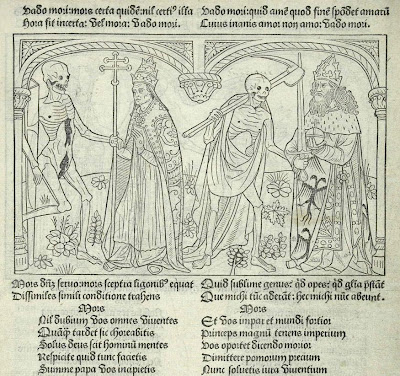 Uado mori:mors certa quidē:nil certi⁹ illa
Hora sit incerta: Uel mora: Uado mori.
Uado mori:quid amē quod finē spōdet amarū
Cuius inanis amor: non amo: Uado mori.
Mors dn̄s seruo:mors sceptra ligonib⁹ equat
Dissimiles simili conditione trahens
Mors
Nil dubium vos omnes viuentes
Quāq̄ tardet sic choreabitis
Solus deus scit hominū mentes
Respicite quid tunc facietis
Summe papa vos inapietis
Quid sublime genus: qd̄ opes: qd̄ glīa p̄stāt
Que michi tūc aderāt: hec michi nūc abeunt.
Mors
Et vos impar et mundi fortior
Princeps magnū tenens imperium
Vos oportet dicendo morior
Dimittere pomorum precium
Nunc soluetis iura viuentium